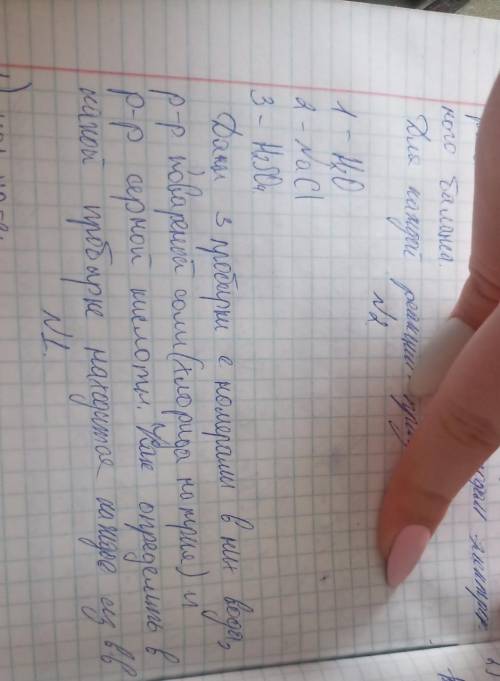 ного баланса.
Для каждой реакции
N2
1 - H2O
2 - NaCl
3 - H2SO4
Даны 3 пробирки с номерами в них вода,
р-р поваренной соли (хлорида натрия) и
р-р серной кислоты. Как определить в
какой пробирке находится каждое из в-в
N1.